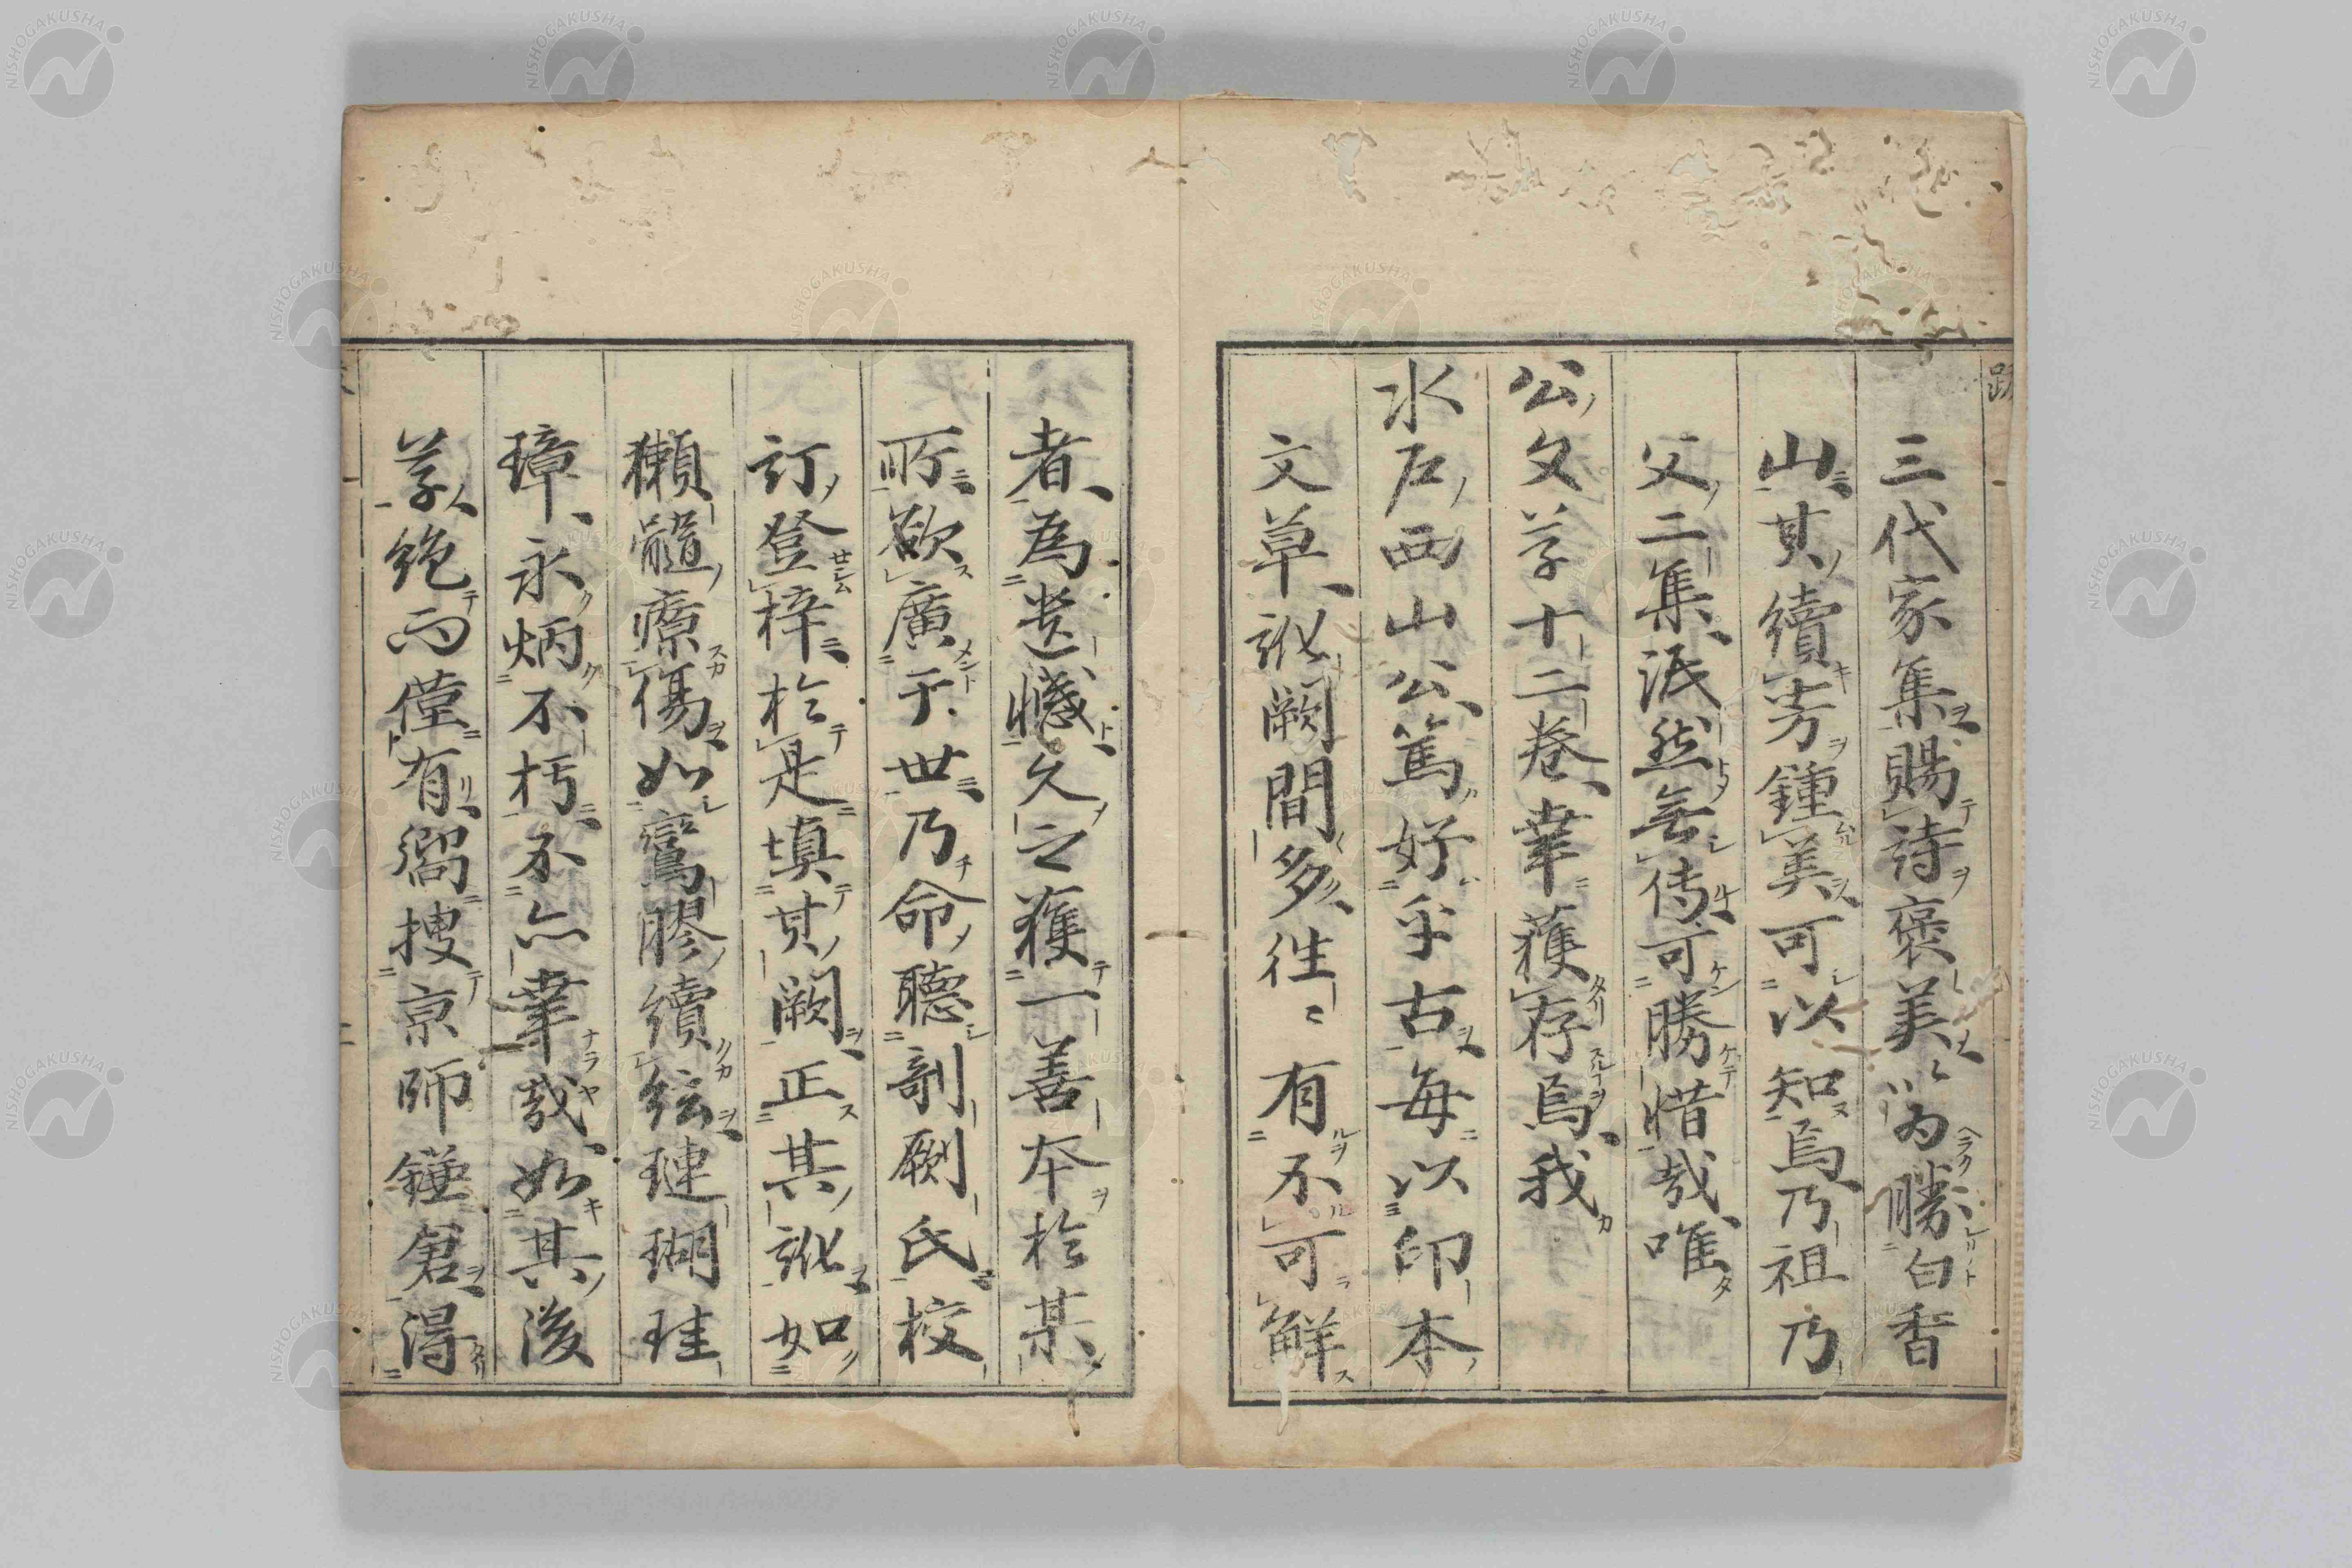 三代家集賜詩褒美以為勝白香
山其續芳鍾美可以知焉乃祖乃
父二集泯然無傳可勝惜哉唯
公文草十二卷幸獲存焉我
水戸西山公篤好乎古每以印本
文草訛闕間多往〻有不可鮮
者為遺憾久之獲一善本於某
所欲廣于世乃命聽剞劂氏校
訂登梓於是填其闕正其訛如
獺髓療傷如鸞膠續絃璉瑚珪
璋永炳不朽不亦幸哉如其後
草絶而僅有嚮搜京師鎌倉得